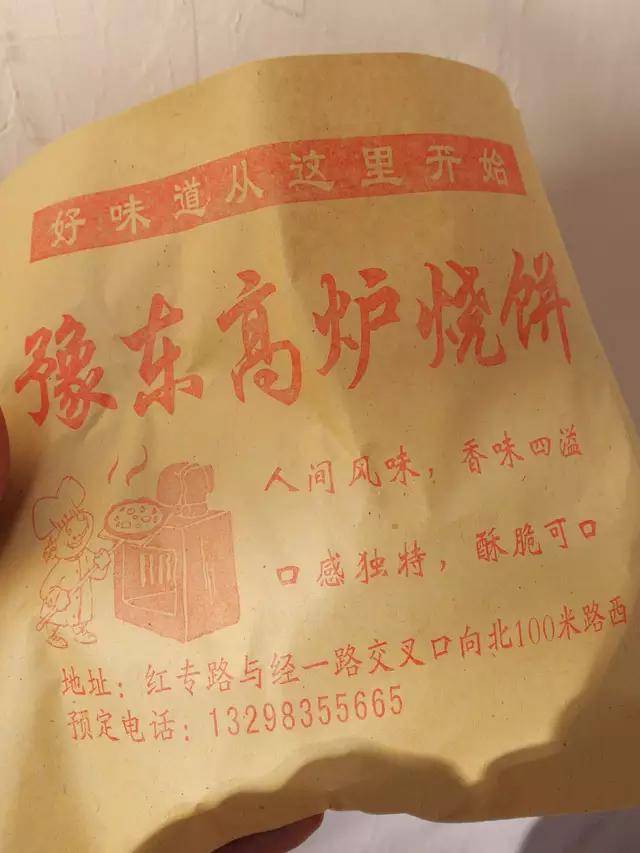 好味道从这里开始
豫东高炉烧饼
人间风味，香味四溢
口感独特，酥脆可口
地址：红专路与经一路交叉口向北100米路西
预定电话：13298355665